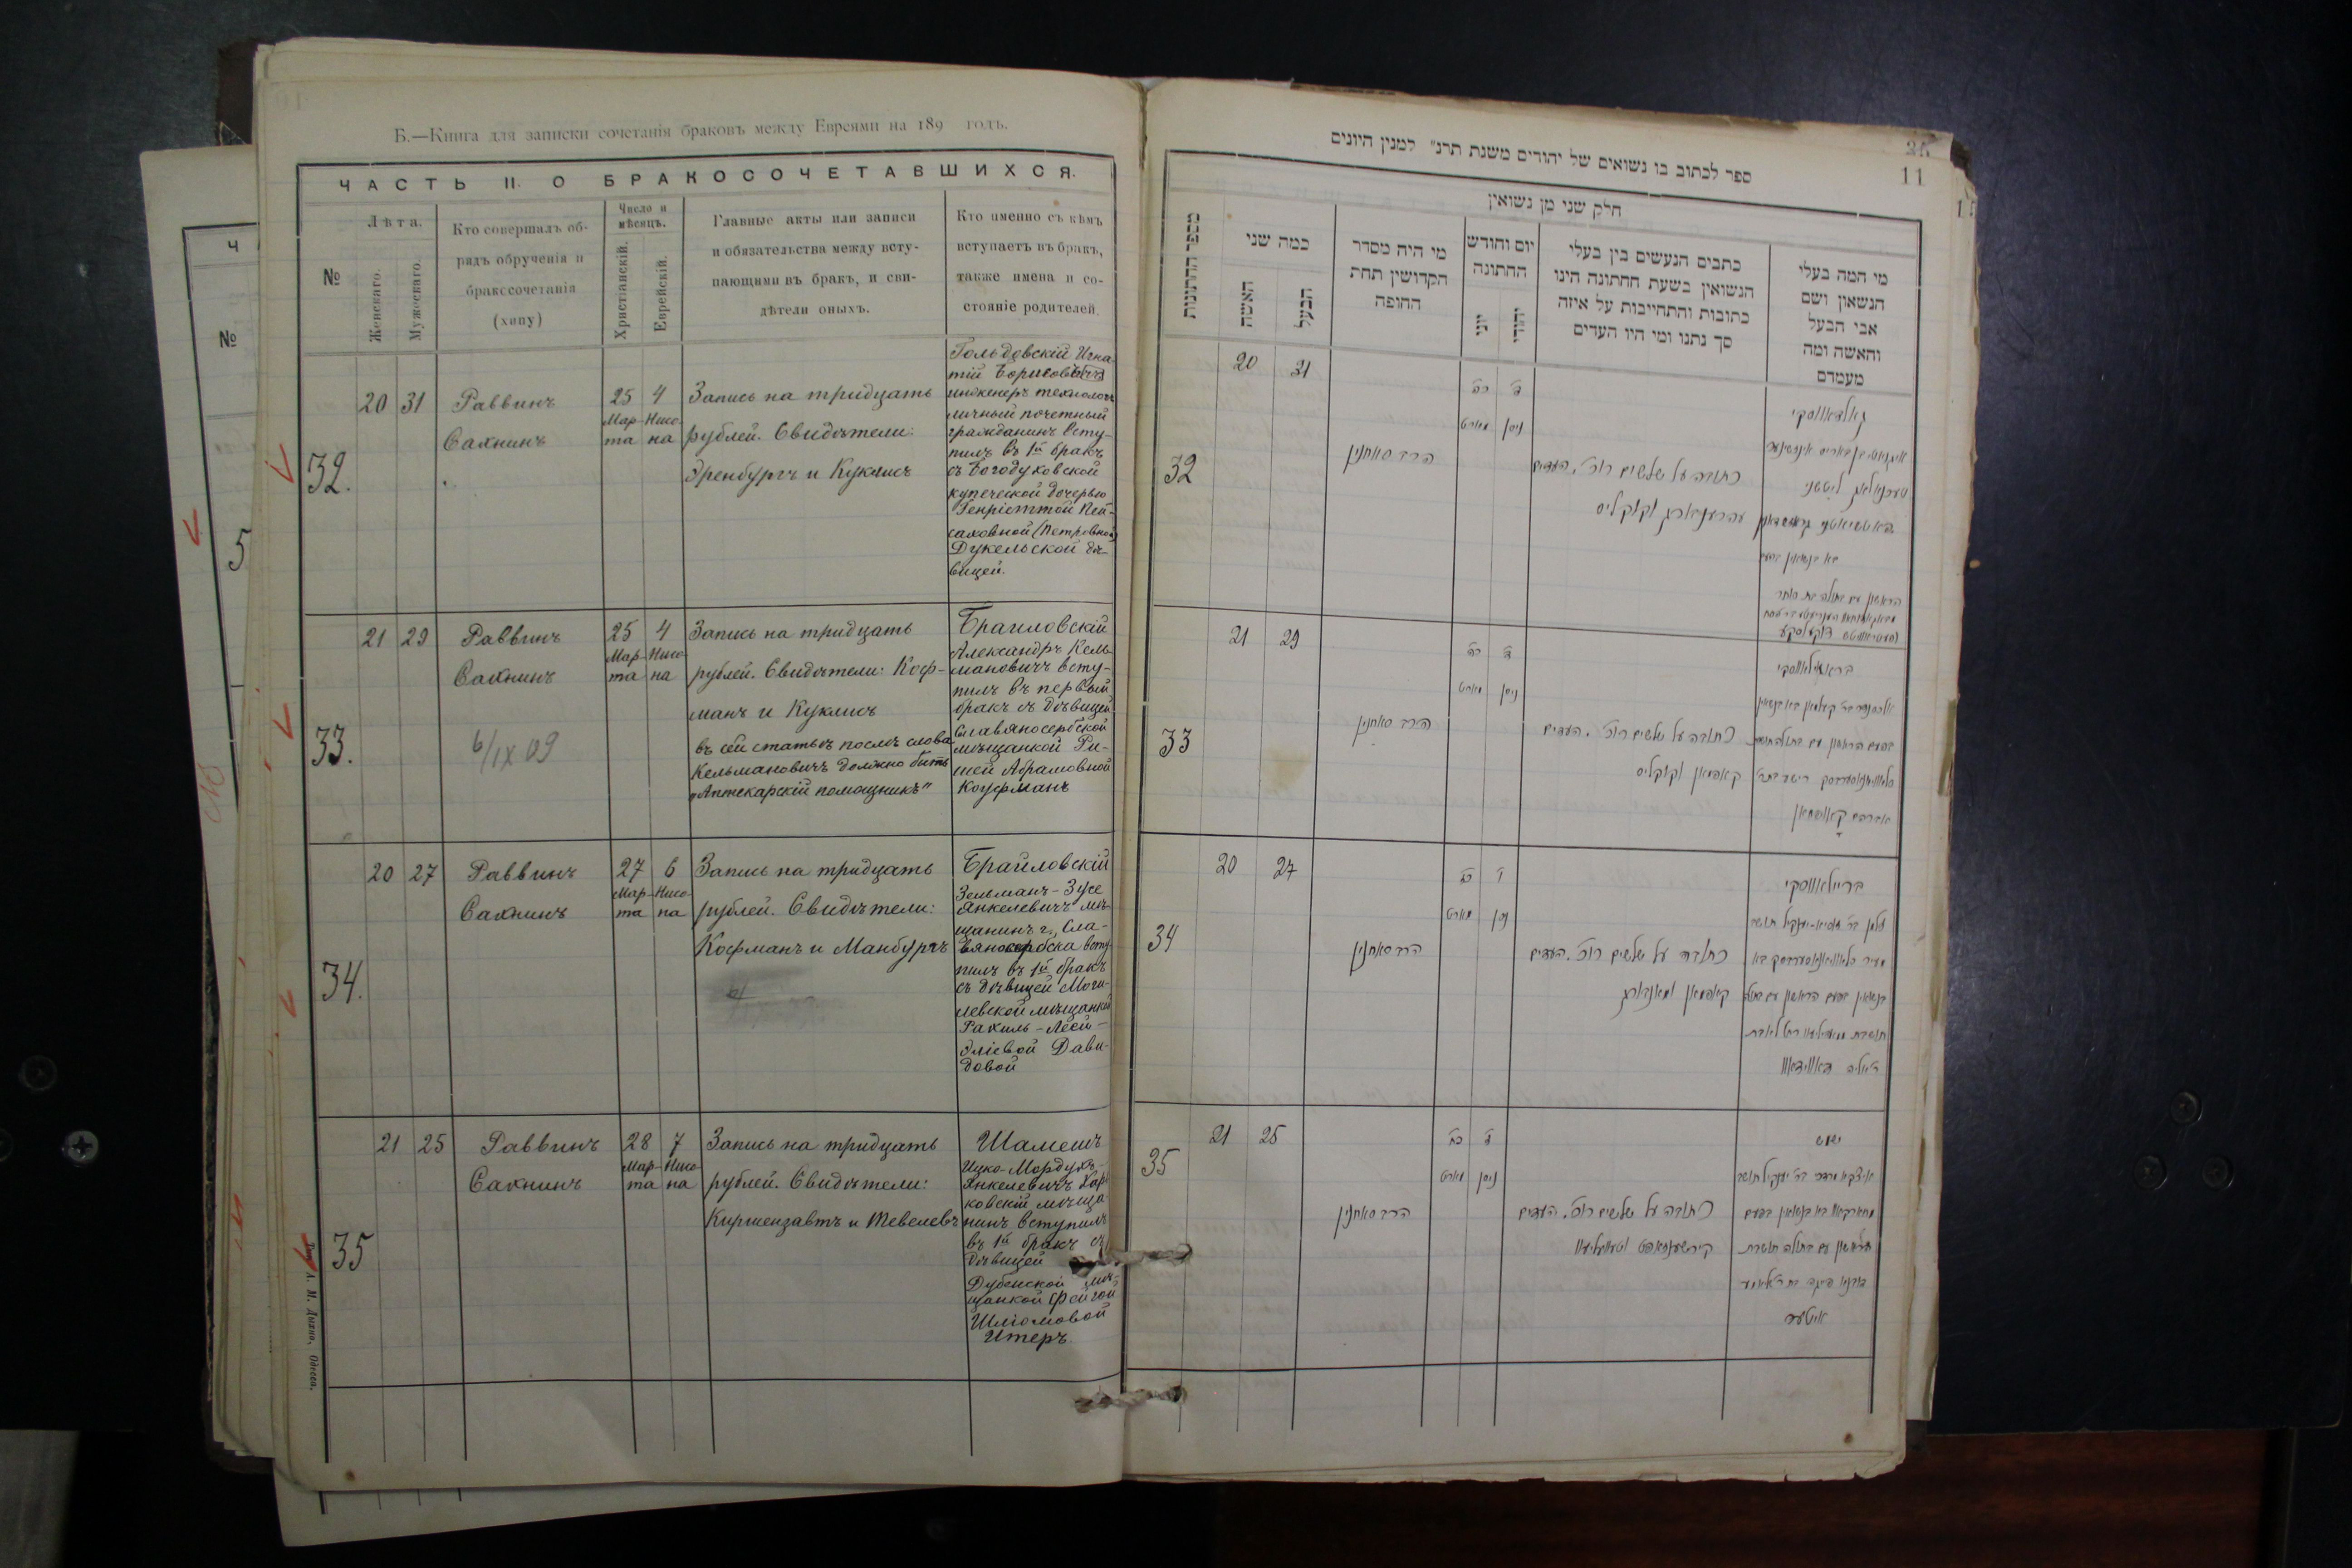 Б.—Книга для записки сочетанія браковъ между Евреями на 189 годъ.
ЧАСТЬ II. О БРАКОСОЧЕТАВШИХСЯ.
№
Лѣта.
Женскаго.
Мужескаго.
Кто совершалъ об-
рядъ обрученія и
бракосочетанія
(хупу)
Число и
мѣсяцъ.
Христіанскій.
Еврейскій.
Главные акты или записи
и обязательства между всту-
пающими въ бракъ, и сви-
дѣтели оныхъ.
Кто именно съ кѣмъ
вступаетъ въ бракъ,
также имена и со-
стояніе родителей.
32.
20 31
Раввинъ
Сахнинъ
25 4
Мар-Ниса-
та на
Запись на тридцать
рублей. Свидѣтели:
Эренбургъ и Куклисъ
Гольдовскій Игна-
тій Борисовичъ
инженеръ технологъ
личный почетный
гражданинъ всту-
пилъ въ 1й бракъ
съ Богодуховской
купеческой дочерью
Генріеттой Пей-
саховной (Петровной)
Дукельской дѣ-
вицей.
33.
21 29
Раввинъ
Сахнинъ
6/IX 09
25 4
Мар- Ниса-
та на
Запись на тридцать
рублей. Свидѣтели: Коф-
манъ и Куклисъ
въ сей статьѣ послѣ слова
Кельмановичъ должно быть
„Аптекарскій помощникъ"
Браиловскій
Александръ Кель-
мановичъ всту-
пилъ въ первый
бракъ съ дѣвицей
Славяносербской
мѣщанкой Ри-
шей Абрамовной
Кауфманъ
34.
20 27
Раввинъ
Сахнинъ
27 6
Мар- Ниса-
та на
Запись на тридцать
рублей. Свидѣтели:
Кофманъ и Манбургъ
Браиловскій
Зельманъ-Зусе
Янкелевичъ мѣ-
щанинъ г. Сла-
вяносербска всту-
пилъ въ 1й бракъ
съ дѣвицей Моги-
левской мѣщанкой
Рахиль-Леей-
Эліевой Дави-
довой
35
21 25
Раввинъ
Сахнинъ
28 7
Мар- Ниса-
та на
Запись на тридцать
рублей. Свидѣтели:
Киршензавтъ и Тевелевъ
Шамешъ
Ицко-Мордухъ-
Янкелевичъ Харь
ковскій мѣща-
нинъ вступилъ
въ 1й бракъ съ
дѣвицей
Дубенской мѣ-
щанкой Фейгой
Шліомовой
Итеръ.
А. М. Дыхно, Одесса.
Ч
№
5
11
ספר לכתוב בו נשואים של יהודים משנת תרנ״ למנין היונים
חלק שני מן נשואין
מספר החתונות
כמה שני
האשה
הבעל
מי היה מסדר
הקדושין תחת
החופה
יום וחודש
החתונה
יוני
יהודי
כתבים הנעשים בין בעלי
הנשואין בשעת החתונה הינו
כתובות והתחייבות על איזה
סך נתנו ומי היו העדים
מי המה בעלי
הנשאון ושם
אבי הבעל
והאשה ומה
מעמדם
32
20 31
הרב סאחנין
כה ד
מארט ניסן
כתובה על שלשים רוכ׳. העדים
עהרענבורג וקוקליס
גאלדאווסקי
33
21 29
הרב סאחנין
כה ד
מארט ניסן
כתובה על שלשים רוכ׳. העדים
קאפמאן וקוקליס
בראאילאווסקי
אברהם קאופמאן
34
20 27
הרב סאחנין
כז ו
מארט ניסן
כתובה על שלשים רוכ׳. העדים
קאפמאן ומאנבורג
בריילאווסקי
35
21 25
הרב סאחנין
כח ז
מארט ניסן
כתובה על שלשים רוכ׳. העדים
קירשענזאפט וטעוועליעוו
שמש
איטער